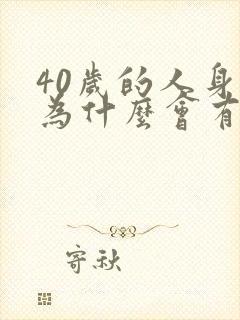 40歲的人身
為什麼會有
寄秋